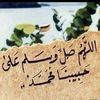 اللهم صل وسلم على
حبيبنا محمد